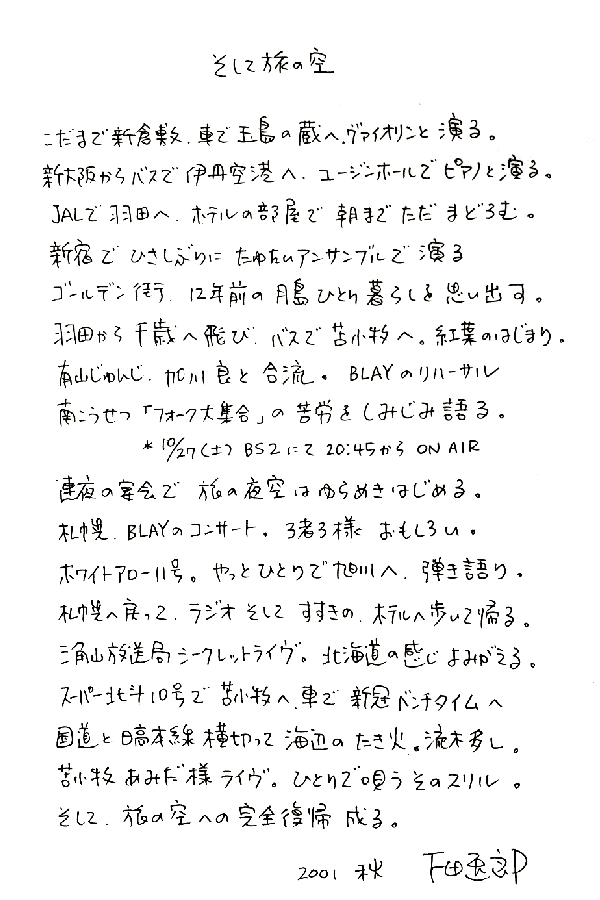 そして旅の空
こだまで新倉敷、車で玉島の蔵へ、ヴァイオリンと演る。
新大阪からバスで伊丹空港へ、ユージンホールでピアノと演る。
JALで羽田へ、ホテルの部屋で朝までただまどろむ。
新宿でひさしぶりにたゆたいアンサンブルで演る
ゴールデン街、12年前の月島ひとり暮らしを思い出す。
羽田から千歳へ飛び、バスで苫小牧へ。紅葉のはじまり。
有山じゅんじ、加川良と合流。BLAYのリハーサル
南こうせつ「フォーク大集合」の苦労をしみじみ語る。
*10/27(土)BS2にて20:45からON AIR
連夜の宴会で旅の夜空はゆらめきはじめる。
札幌、BLAYのコンサート。3者3様おもしろい。
ホワイトアロー11号。やっとひとりで旭川へ、弾き語り。
札幌へ戻って、ラジオそしてすすきの、ホテルへ歩いて帰る。
三角山放送局シークレットライヴ。北海道の感じよみがえる。
スーパー北斗10号で苫小牧へ、車で新冠ベンチタイムへ
国道と日高本線横切って海辺のたき火。流木多し。
苫小牧あみだ様ライヴ。ひとりで唄うそのスリル。
そして、旅の空への完全復帰成る。
2001 秋 下田逸郎